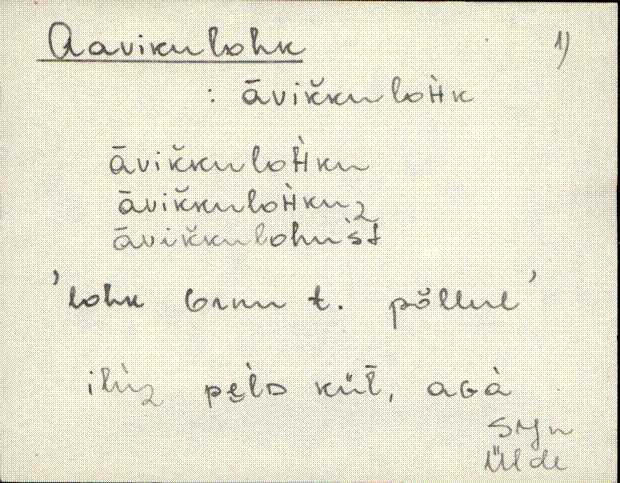 Aavikulohk 1)
: āvikˇkuloH̀k
āvikˇkuloH̀ku
āvikˇkuloH̀kuz
āvikˇkulohuist
'lohk orku t. põllul'
ilùz pe̬lD küll̄, aGà
Syn
Ülde